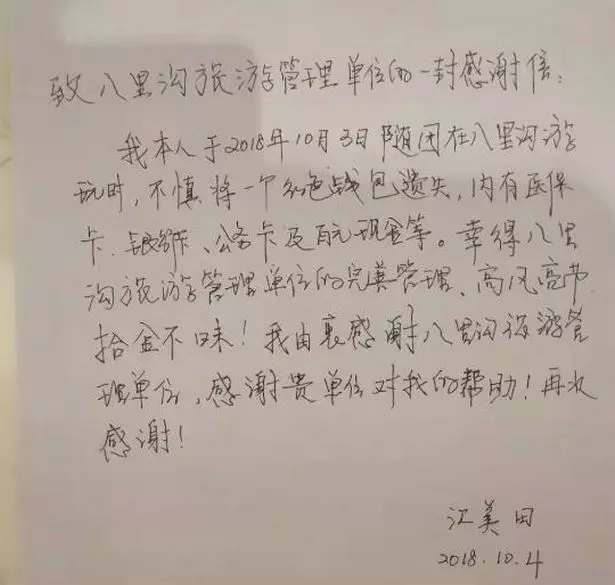 致八里沟旅游管理单位的一封感谢信：
我本人于2018年10月3日随团在八里沟游
玩时，不慎将一个红色钱包遗失，内有医保
卡、银行卡、公交卡及百元现金等。幸得八里
沟旅游管理单位的完善管理、高风亮节
拾金不昧！我由衷感谢八里沟旅游管
理单位，感谢贵单位对我的帮助！再次
感谢！
江美田
2018.10.4